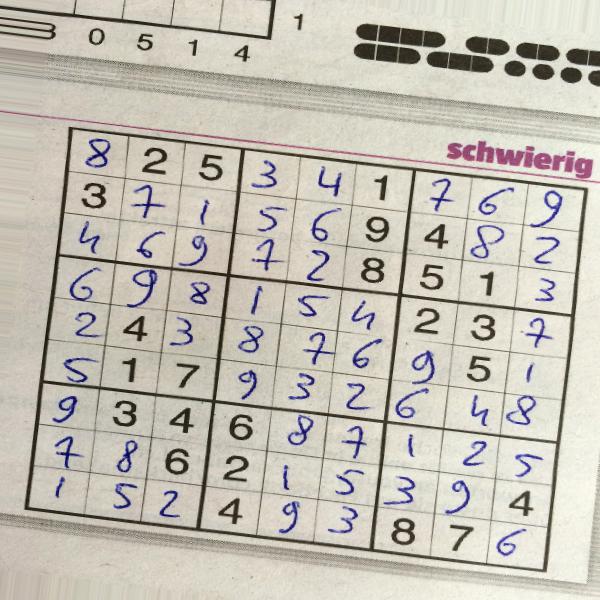 1
0 5 1 4
schwierig
8 2 5 3 4 1 7 6 9
3 7 1 5 6 9 4 8 2
4 6 9 7 2 8 5 1 3
6 9 8 1 5 4 2 3 7
2 4 3 8 7 6 9 5 1
5 1 7 9 3 2 6 4 8
9 3 4 6 8 7 1 2 5
7 8 6 2 1 5 3 9 4
1 5 2 4 9 3 8 7 6